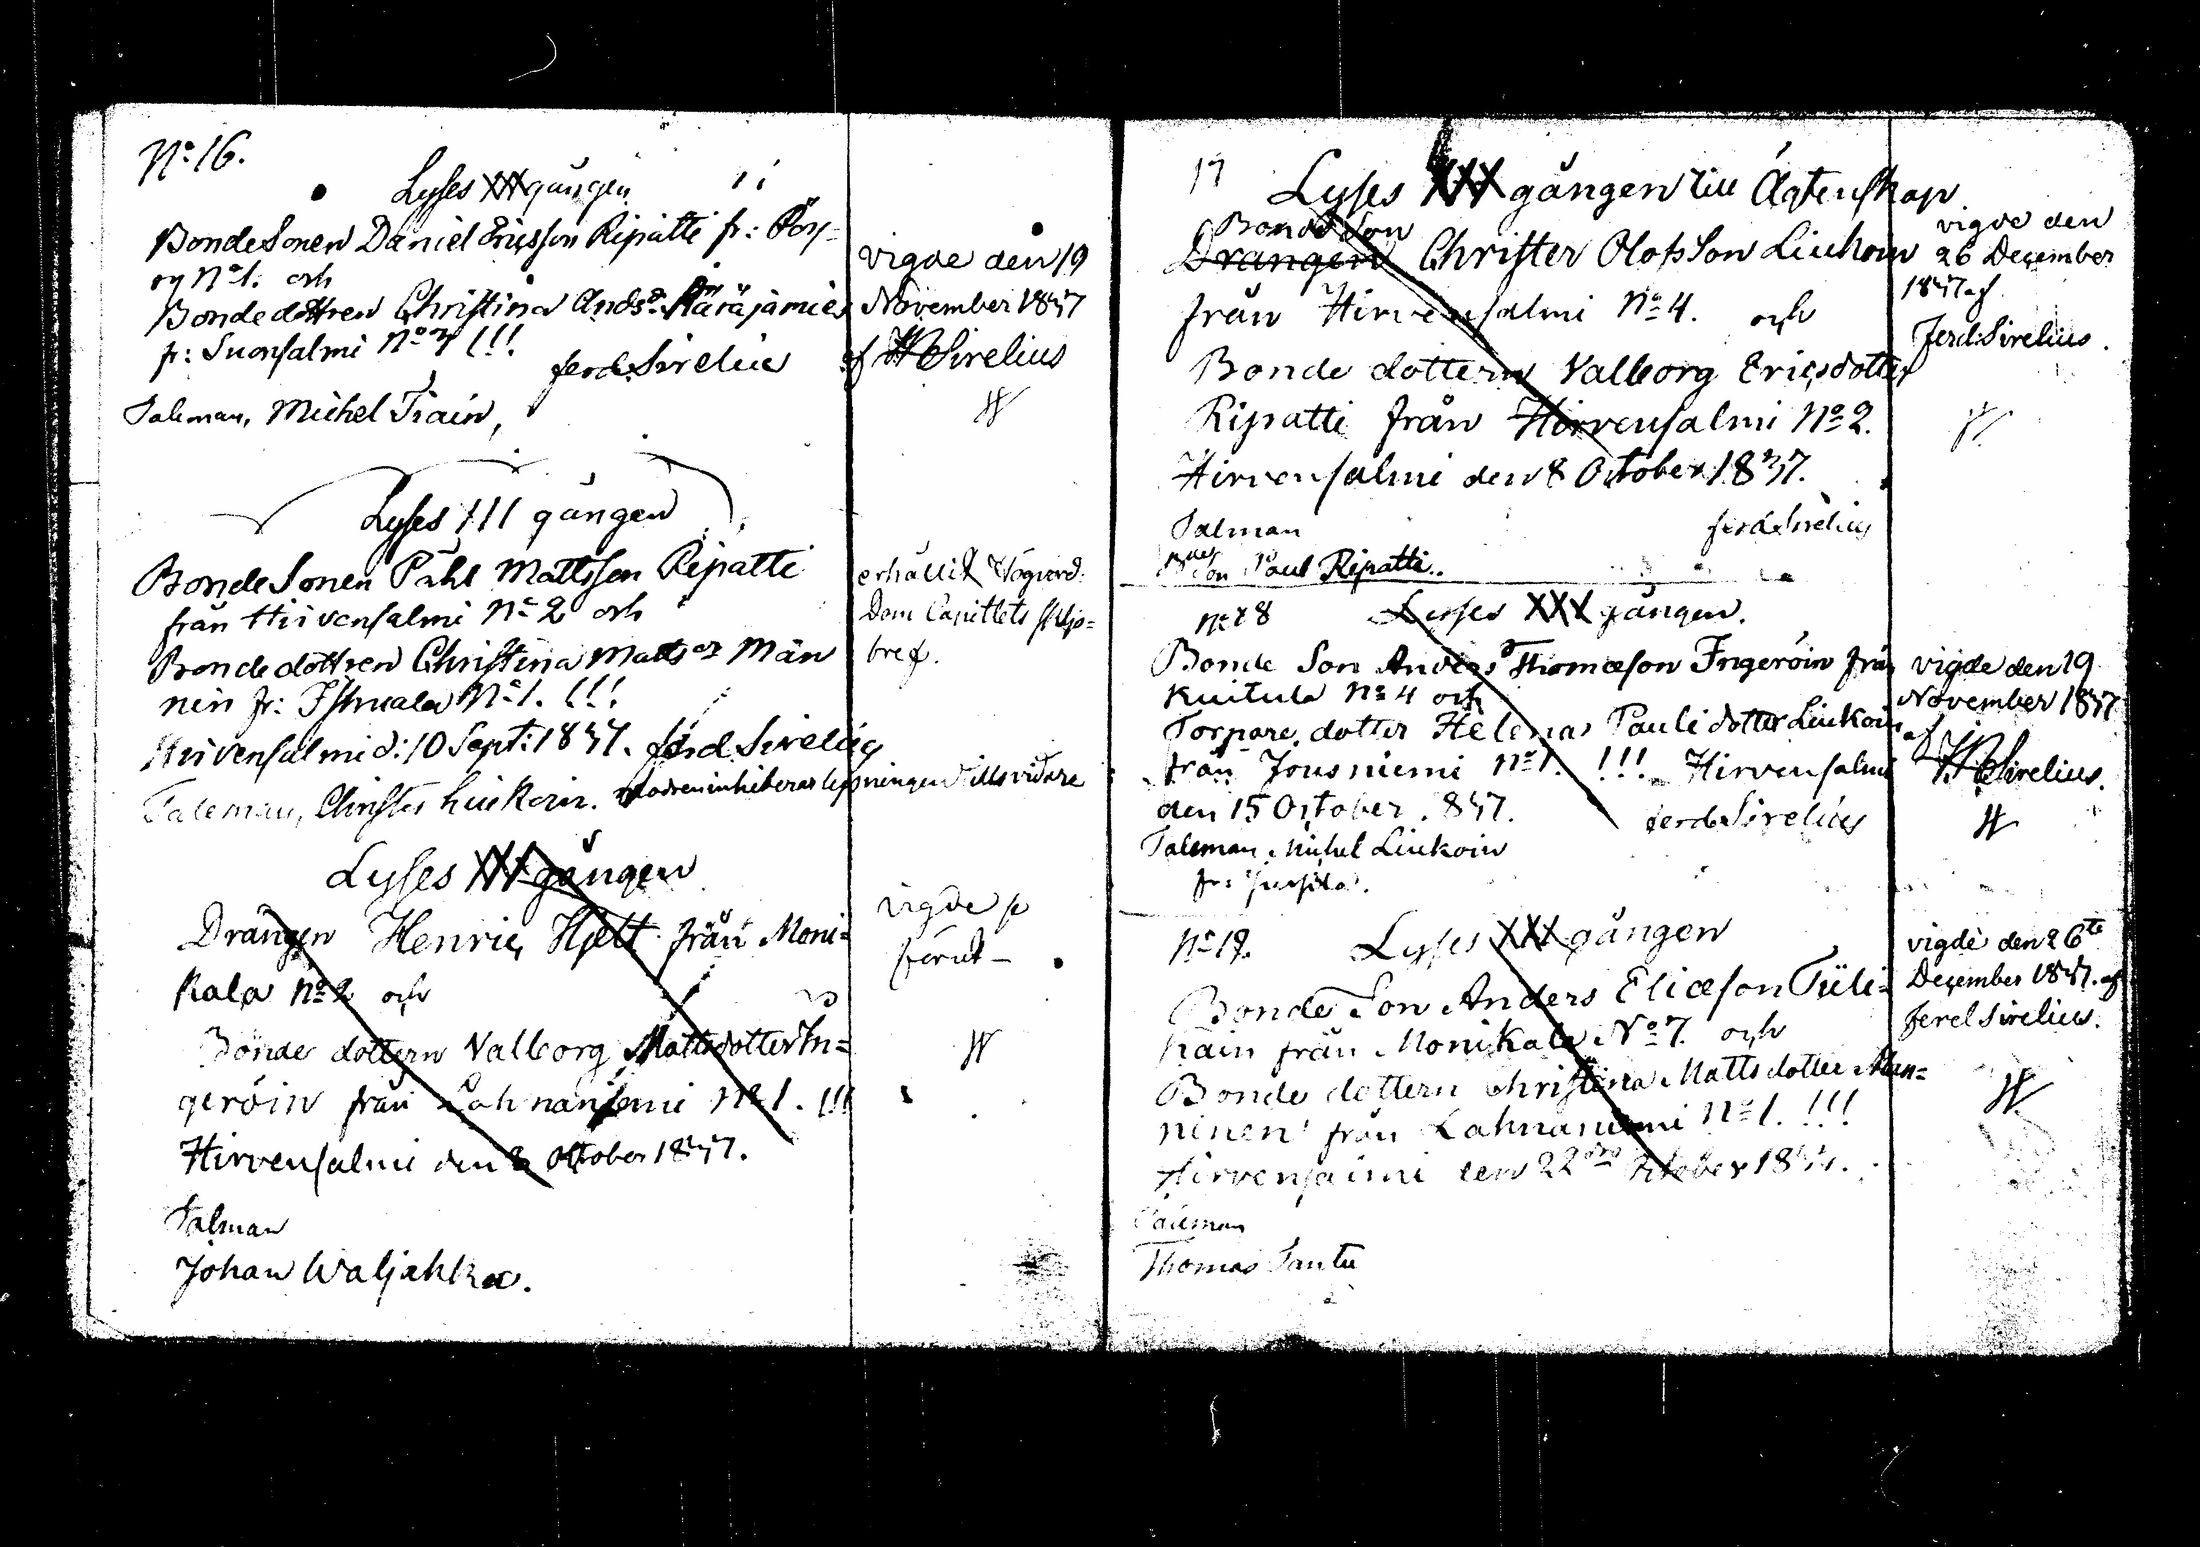 No 16.
Lyses XXX gången
Bonde Sonen Daniel Ericsson Ripatti fr: Pöy=
ry No 1. och
Bonde dottren Christina Andsdr Käräjämies
fr: Suonsalmi No 7 !!!
ferd. Sirelius
Taleman, Michel Tiain,
vigde den 19
November 1837
af W Sirelius
Lyses III gången
Bonde Sonen Påhl Mattsson Ripatti
från Hirvensalmi No 2 och
Bonde dottren Christina Matsdr Män
nin fr: Istruala No 1. !!!
Hirvensalmi d: 10 Sept: 1837. ferd Sirelius
Taleman, Christer Liukoin. Modren inhiberar lysningen tillsvidare
erhållit Högvörd.
Dom Capitlets skiljo=
bref.
Lyses XXX gången
Drängen Henric Hjelt från Moni=
kala No 2 och
Bonde dottern Valborg Mattsdotter In=
geröin från Lahnaniemi No 1. !!!
Hirvensalmi den 8 October 1837.
Talman
Johan Waljakka.
vigde
förut
17
Lyses XXX gången till Ägtenskap
Bonde Son
Drängen Christer Olofsson Liukoin
från Hirvensalmi No 4. och
Bonde dottern Valborg Ericsdotter
Ripatti från Hirvensalmi No 2.
Hirvensalmi den 8 October 1837.
Talman ferd Sirelius
Son Paul Ripatti.
vigde den
26 December
1837 af
Ferd: Sirelius.
No 18 Lyses XXX gången.
Bonde Son Anders Thomæson Ingeröin från
Kuitula No 4 och
Torpare dotter Helena Pauli dotter Liukoin
från Jousniemi No 1. !!! Hirvensalmi
den 15 October 837. ferd Sirelius
Taleman Michel Liukoin
vigde den 19
November 1837
af
W Sirelius.
No 19. Lyses XXX gången
Bonde Son Anders Eliæson Tüli=
kain från Monikala No 7. och
Bonde dottern Christina Matts dotter Män=
ninen från Lahnaniemi No 1. !!!
Hirvensalmi den 22dra October 1837.
Taleman
Thomas Tantu
vigde den 26te
December 1837. af
ferd Sirelius.